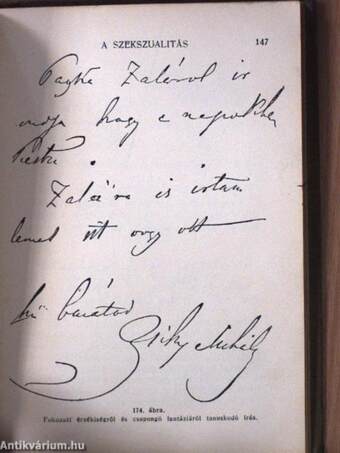 A SZEKSZUALITÁS 147
Zalárol is
hogy e napokban
Pestre .
Zalára is irtam
itt vagy ott
hű barátod
Zichy Mihály
174. ábra.
Fokozott érzékiségről és csapongó fantáziáról tanuskodó írás.
Antikvárium.hu